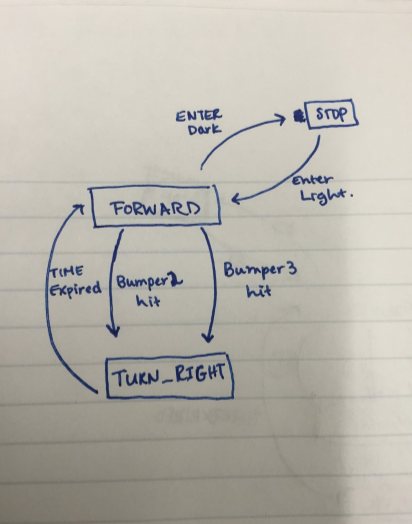 ENTER
Dark
STOP
Enter
Light.
FORWARD
TIME
Expired
Bumper2
hit
Bumper3
hit
TURN_RIGHT